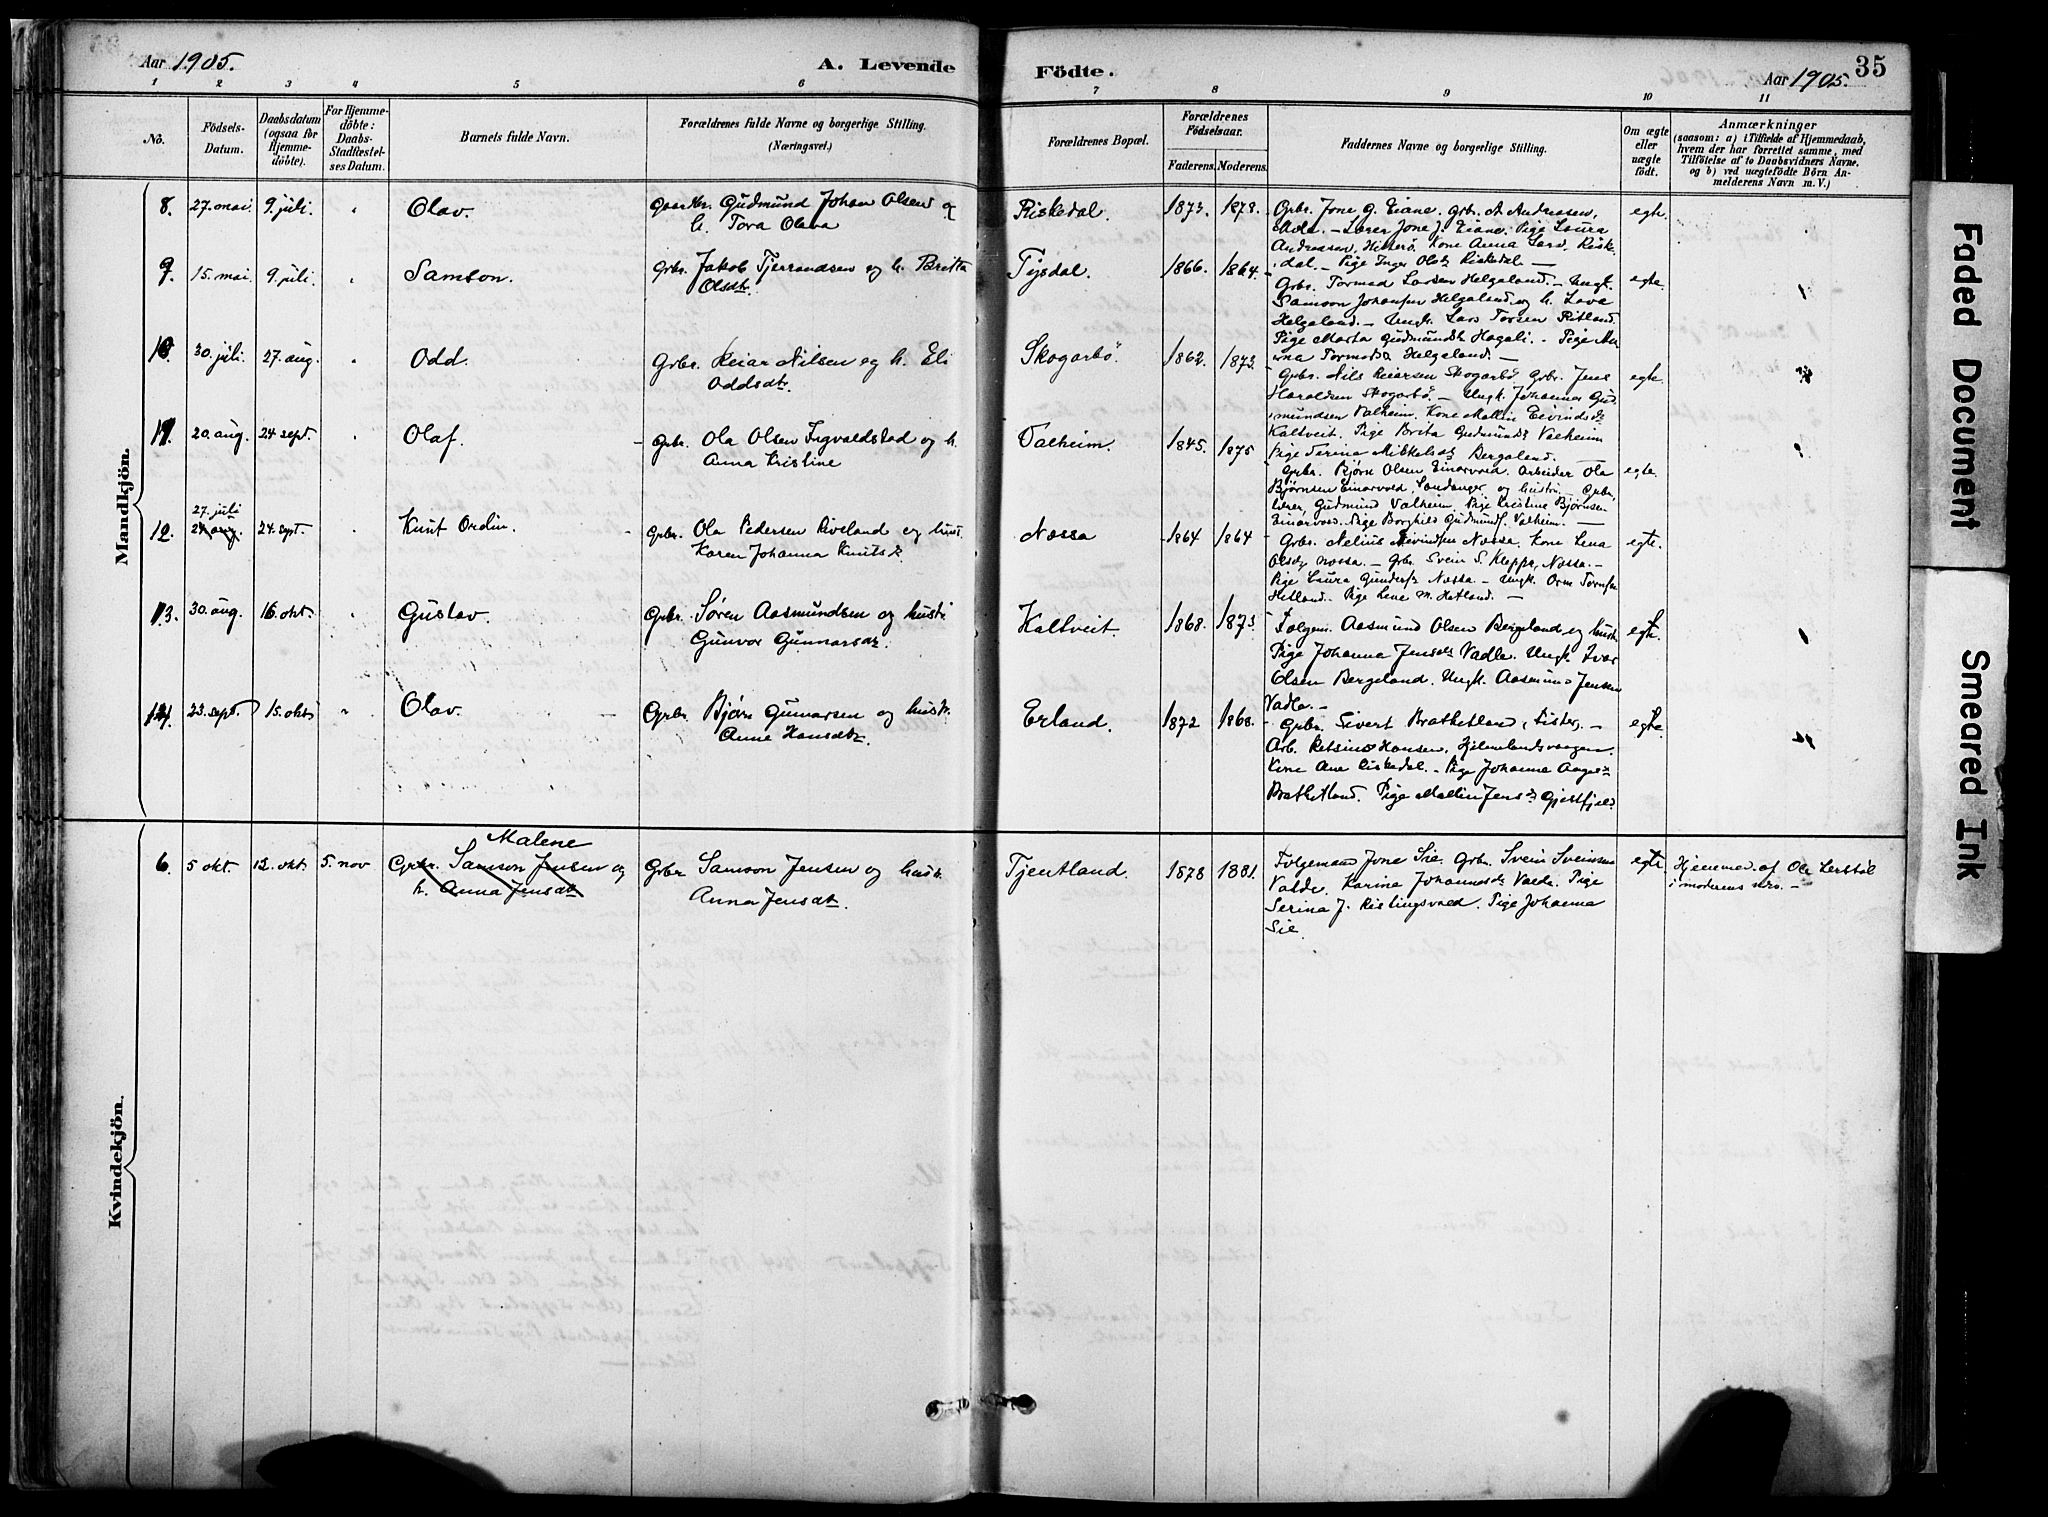 Aar 1905.
A. Levende
Födte.
35
Aar 1905.
1 2 3 4 5 6 7 8 9 10 11
No.
Födsels-
Datum.
Daabsdatum
(ogsaa for
Hjemme-
döbte).
For Hjemme-
döbte:
Daabs-
Stadfæstel-
ses Datum.
Barnets fulde Navn.
Forældrenes fulde Navne og borgerlige Stilling.
(Næringsvei.)
Forældrenes Bopæl.
Forældrenes
Födselsaar.
Faderens. Moderens.
Faddernes Navne og borgerlige Stilling.
Om ægte
eller
uægte
født.
Anmærkninger
(saasom: a) i Tilfælde af Hjemmedaab,
hvem der har forrettet samme, med
Tilföielse af to Daabsvidners Navne,
og b) ved uægtefödte Börn An-
melderens Navn m. V.)
Mandkjön.
8. 27. mai. 9. juli. Olav. Gaardbr. Gudmund Johan Olsen og
h. Tora Olava
Riskedal. 1873. 1878.
Grbr. Jone G. Eiane. Grbr. A. Andreasen,
Lærer Jone J. Eiane. Pige Laura
Andreasen, Hitterö. Kone Anna Lard. Riske-
dal. Pige Inger Olsd. Riskedal.
egte
9. 15. mai. 9. juli. Samson. Grbr. Jakob Tjerrandsen og h. Breita
Olsdtr.
Tysdal. 1866. 1864.
Grbr. Tormod Larsen Helgaland. Ungk.
Samson Johansen Helgaland og h. Lava
Helgaland. Ungk. Lars Torsen Ritland.
Pige Marta Gudmundsdt. Hagali. Pige An-
na Tormodsd. Helgaland.
egte.
10. 30. juli. 27. aug. Odd. Grbr. Reiar Nilsen og h. Eli
Oddsdtr.
Skogarbö. 1862. 1873.
Grbr. Nils Reiarsen Skogarbö. Grbr. Jens
Haraldsen Skogarbö. Ungk. Johannes Gud-
mundsen Valheim. Kone Mallin Eivindsdt
Kaltveit. Pige Brita Gudmunds. Valheim
Pige Serina Mikkelsdt. Bergeland.
egte.
11. 20. aug. 24 sept. Olaf. Grbr. Ola Olsen Ingvaldstad og h.
Anna Kristine
Valheim. 1845. 1875
Grbr. Bjørn Olsen Einarvold. Arbeider Ola
Bjørnsen Einarvold, Sandanger og hustru. Grbr,
lærer, Gudmund Valheim. Pige Kristine Bjørnsen
Einarvold. Pige Borghild Gudmunds. Valheim.
egte.
27. juli
12. 24 aug. 24. sept. Knut Ordin. Grbr. Ola Pedersen Riveland og hust.
Karen Johanna Knutsd.
Næssa 1864 1864
Grbr. Nelius Eivindsen Næssa. Kone Lena
Olsdt Næssa. Grbr. Svein S. Kleppa, Næssa.
Pige Laura Gundersd. Næssa. Ungk. Orm Tormsen
Hetland. Pige Lene M. Hetland.
egte.
13. 30. aug. 16. okt. Gustav. Grbr. Søren Aasmundsen og hustr.
Gunvor Gunnarsdt.
Kaltveit. 1868. 1873.
Folgem. Aasmund Olsen Bergeland og hustr.
Pige Johanna Jensdt. Vadla. Ungk. Ivar
Olsen Bergeland. Ungk. Aasmund Jensen
Vadla.
egte.
14. 23. sept. 15. okt Olav. Grbr. Bjørn Gunnarsen og hustr.
Anne Hansdtr.
Erland. 1872 1868.
Grbr. Sivert Brathetland, Fister.
Arb. Retsius Hansen, Hjelmelandsvaagen.
Kone Ane Riskedal. Pige Johanne Aagesd
Brathetland. Pige Mallin Jensd. Gjestfjeld
egte.
Kvindekjön.
Malene
6. 5 okt. 12. okt 5. nov Grbr. Samson Jensen og
h. Anna Jensdt
Grbr Samson Jensen og hustr.
Anna Jensdt.
Tjentland. 1878 1881.
Folgemand Jone Sie. Grbr. Svein Sveinsen
Valde. Karina Johannesdt Valde. Pige
Serina J. Kislingsvold. Pige Johanna
Sie.
egte.
Hjemmed. af Ole Lerstöl
i moderens nærv.
Faded Document
Smeared Ink